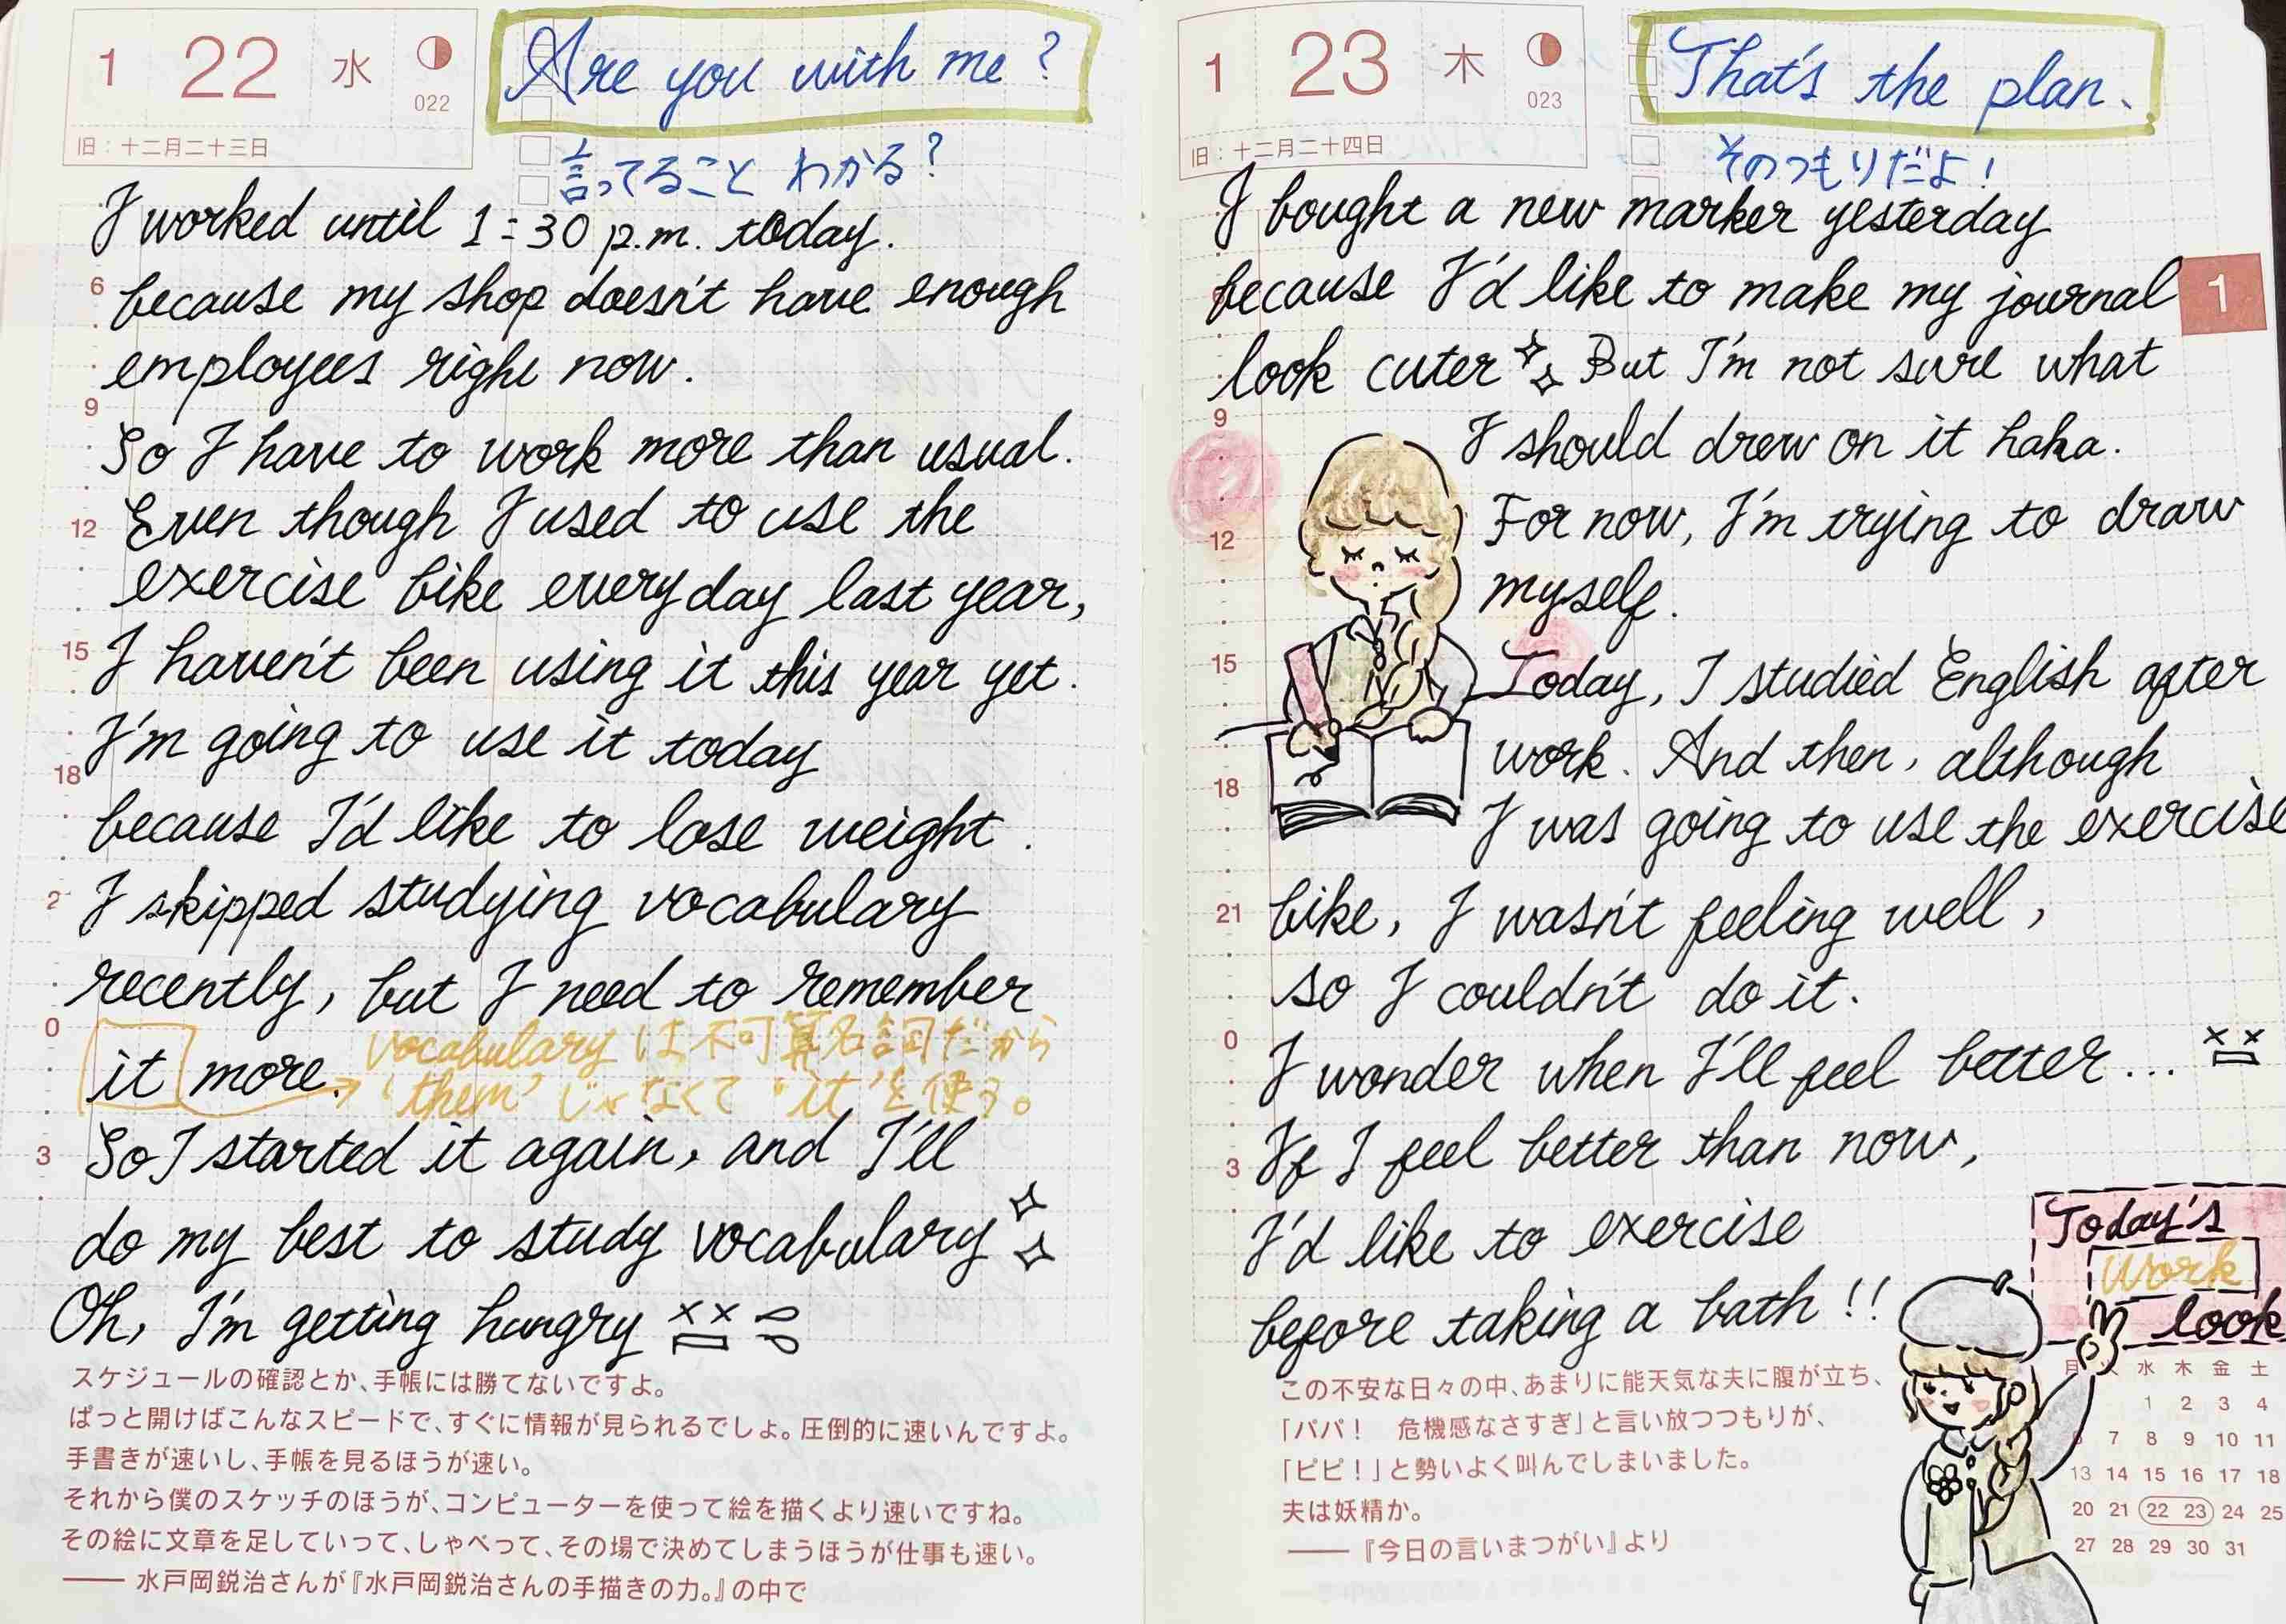 1 22 水
022
旧：十二月二十三日
Are you with me?
言ってること わかる?
I worked until 1:30 p.m. today.
6
because my shop doesn't have enough
employees right now.
9
So I have to work more than usual.
12
Even though I used to use the
exercise bike everyday last year,
15
I haven't been using it this year yet.
I'm going to use it today
18
because I'd like to lose weight.
2
I skipped studying vocabulary
recently, but I need to remember
0
it more.
vocabulary は不可算名詞だから
'them' じゃなくて 'it' を使う。
3
So I started it again, and I'll
do my best to study vocabulary
Oh, I'm getting hungry
スケジュールの確認とか、手帳には勝てないですよ。
ぱっと開けばこんなスピードで、すぐに情報が見られるでしょ。圧倒的に速いんですよ。
手書きが速いし、手帳を見るほうが速い。
それから僕のスケッチのほうが、コンピューターを使って絵を描くより速いですね。
その絵に文章を足していって、しゃべって、その場で決めてしまうほうが仕事も速い。
── 水戸岡鋭治さんが『水戸岡鋭治さんの手描きの力。』の中で
1 23 木
023
旧：十二月二十四日
That's the plan.
そのつもりだよ！
I bought a new marker yesterday
because I'd like to make my journal
1
look cuter But I'm not sure what
9
I should drew on it haha.
12
For now, I'm trying to draw
myself.
15
Today, I studied English after
work. And then, although
18
I was going to use the exercise
21
bike, I wasn't feeling well,
so I couldn't do it.
0
I wonder when I'll feel better...
3
If I feel better than now,
I'd like to exercise
before taking a bath !!
Today's
Work
look
この不安な日々の中、あまりに能天気な夫に腹が立ち、
「パパ！　危機感なさすぎ」と言い放つつもりが、
「ピピ！」と勢いよく叫んでしまいました。
夫は妖精か。
── 『今日の言いまつがい』より
月 水 木 金 土
1 2 3 4
7 8 9 10 11
13 14 15 16 17 18
20 21 22 23 24 25
27 28 29 30 31